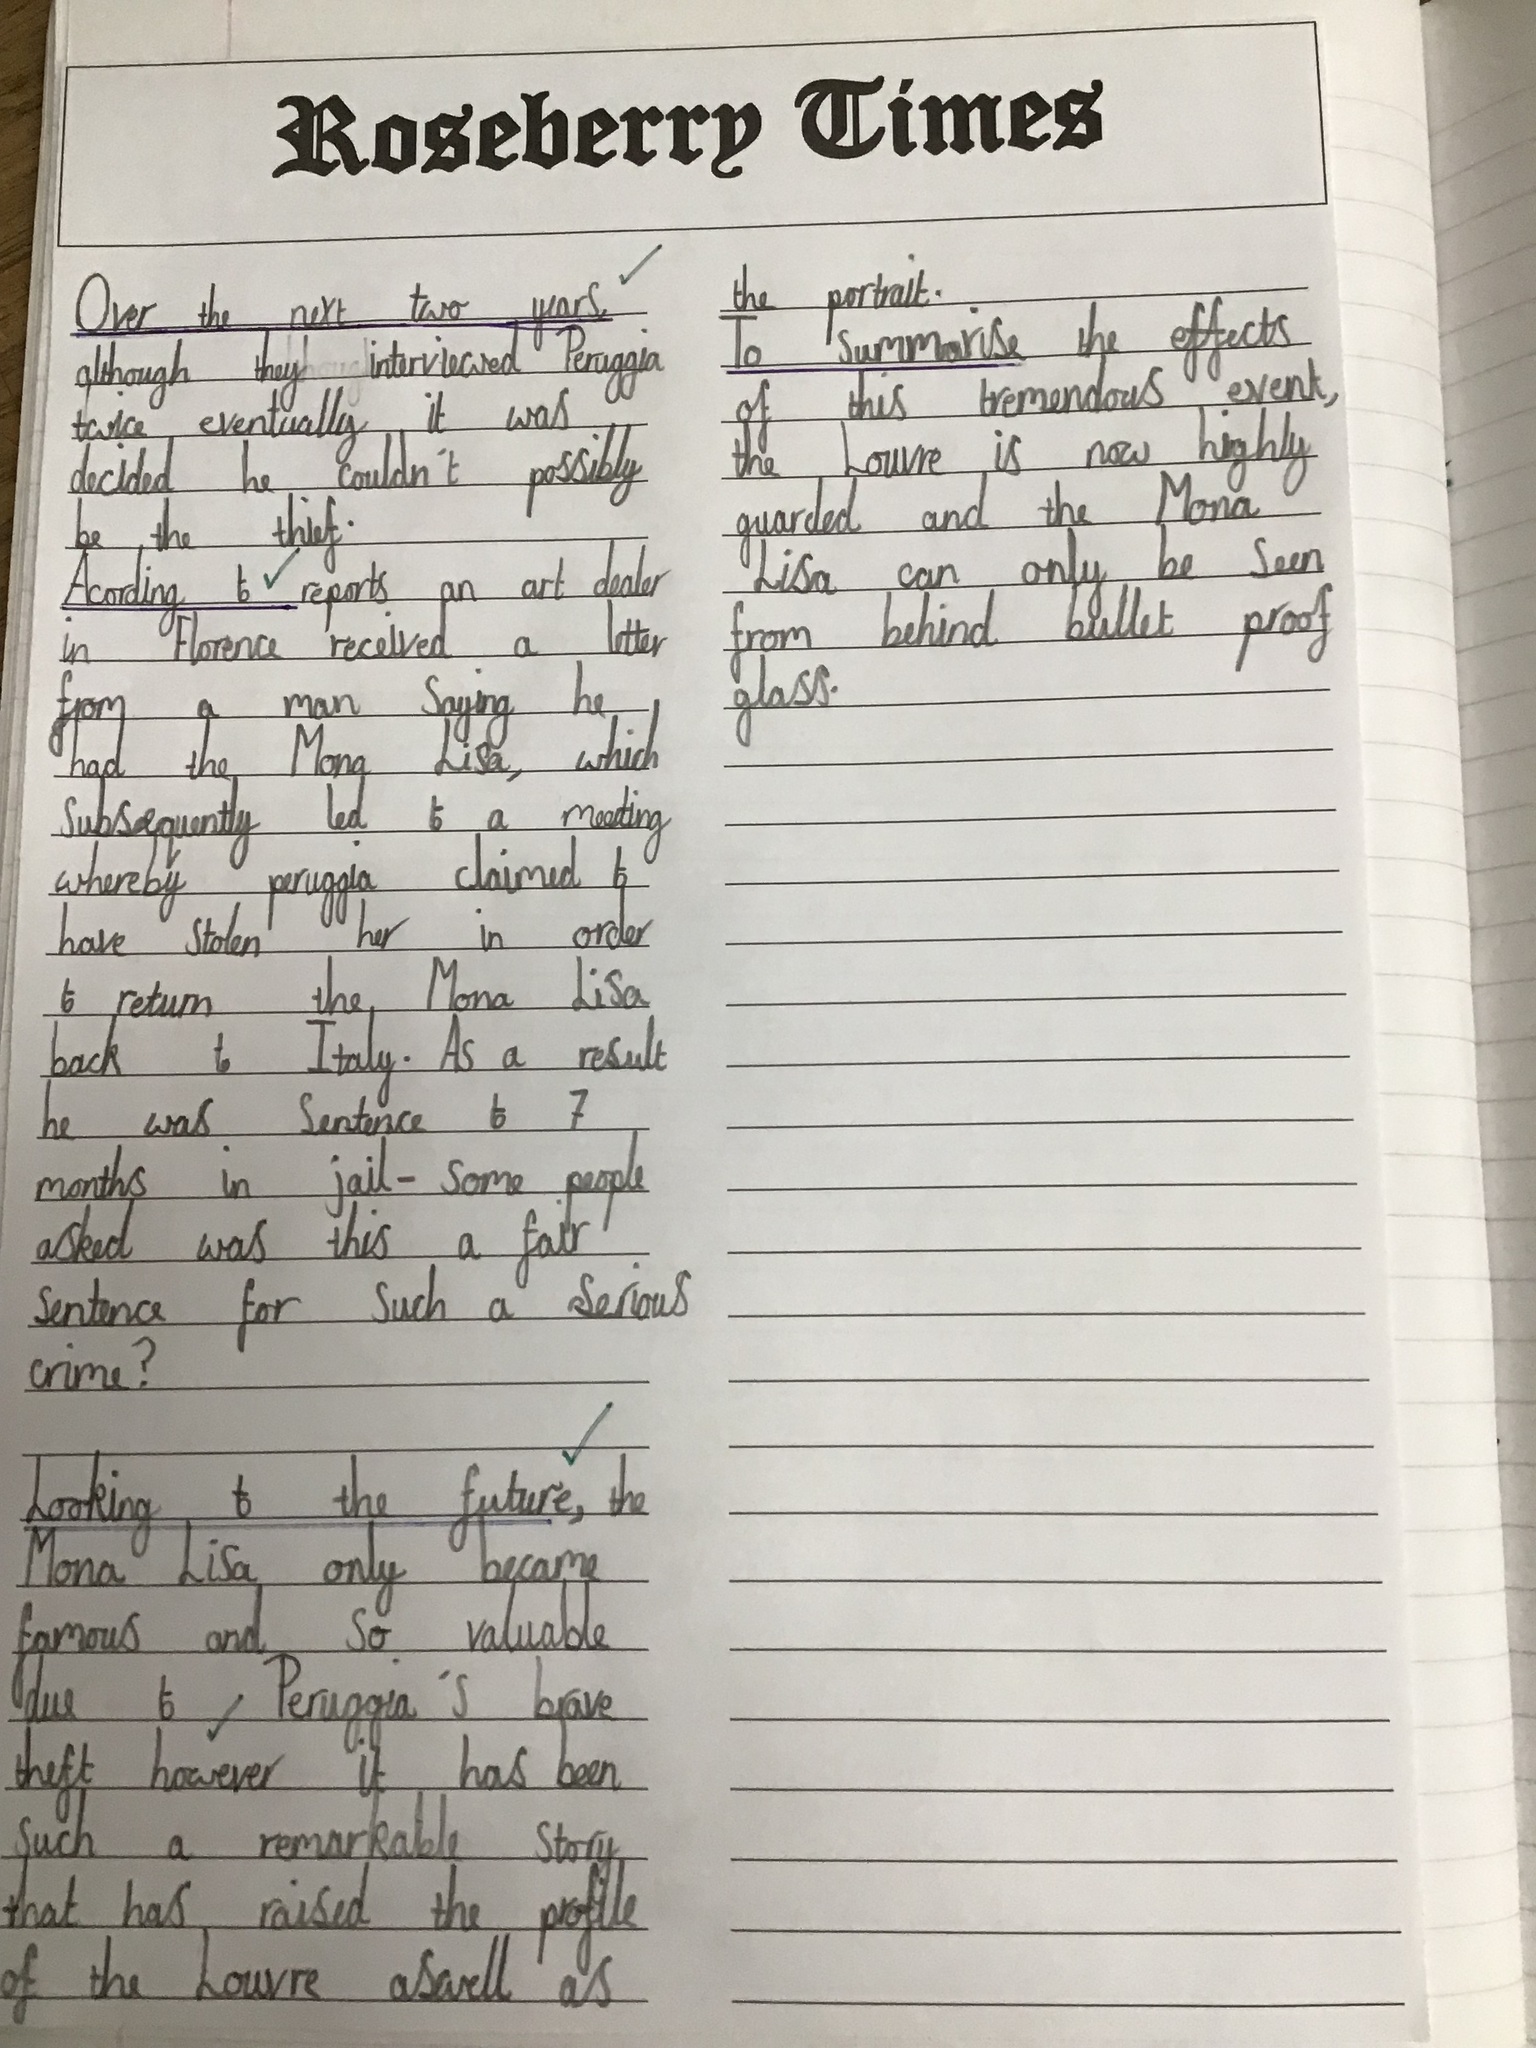 Roseberry Times
Over the next two years,
although they interviewed Peruggia
twice eventually it was
decided he couldn't possibly
be the thief.
Acording to reports an art dealer
in Florence received a letter
from a man saying he
had the Mona Lisa, which
subsequently led to a meeting
whereby peruggia claimed to
have stolen her in order
to return the Mona Lisa
back to Italy. As a result
he was sentence to 7
months in jail- some people
asked was this a fair
sentence for such a serious
crime?
Looking to the future, the
Mona Lisa only became
famous and so valuable
due to Peruggia's brave
theft however it has been
such a remarkable story
that has raised the profile
of the Louvre aswell as
the portrait.
To summarise the effects
of this tremendous event,
the Louvre is now highly
guarded and the Mona
Lisa can only be seen
from behind bullet proof
glass.